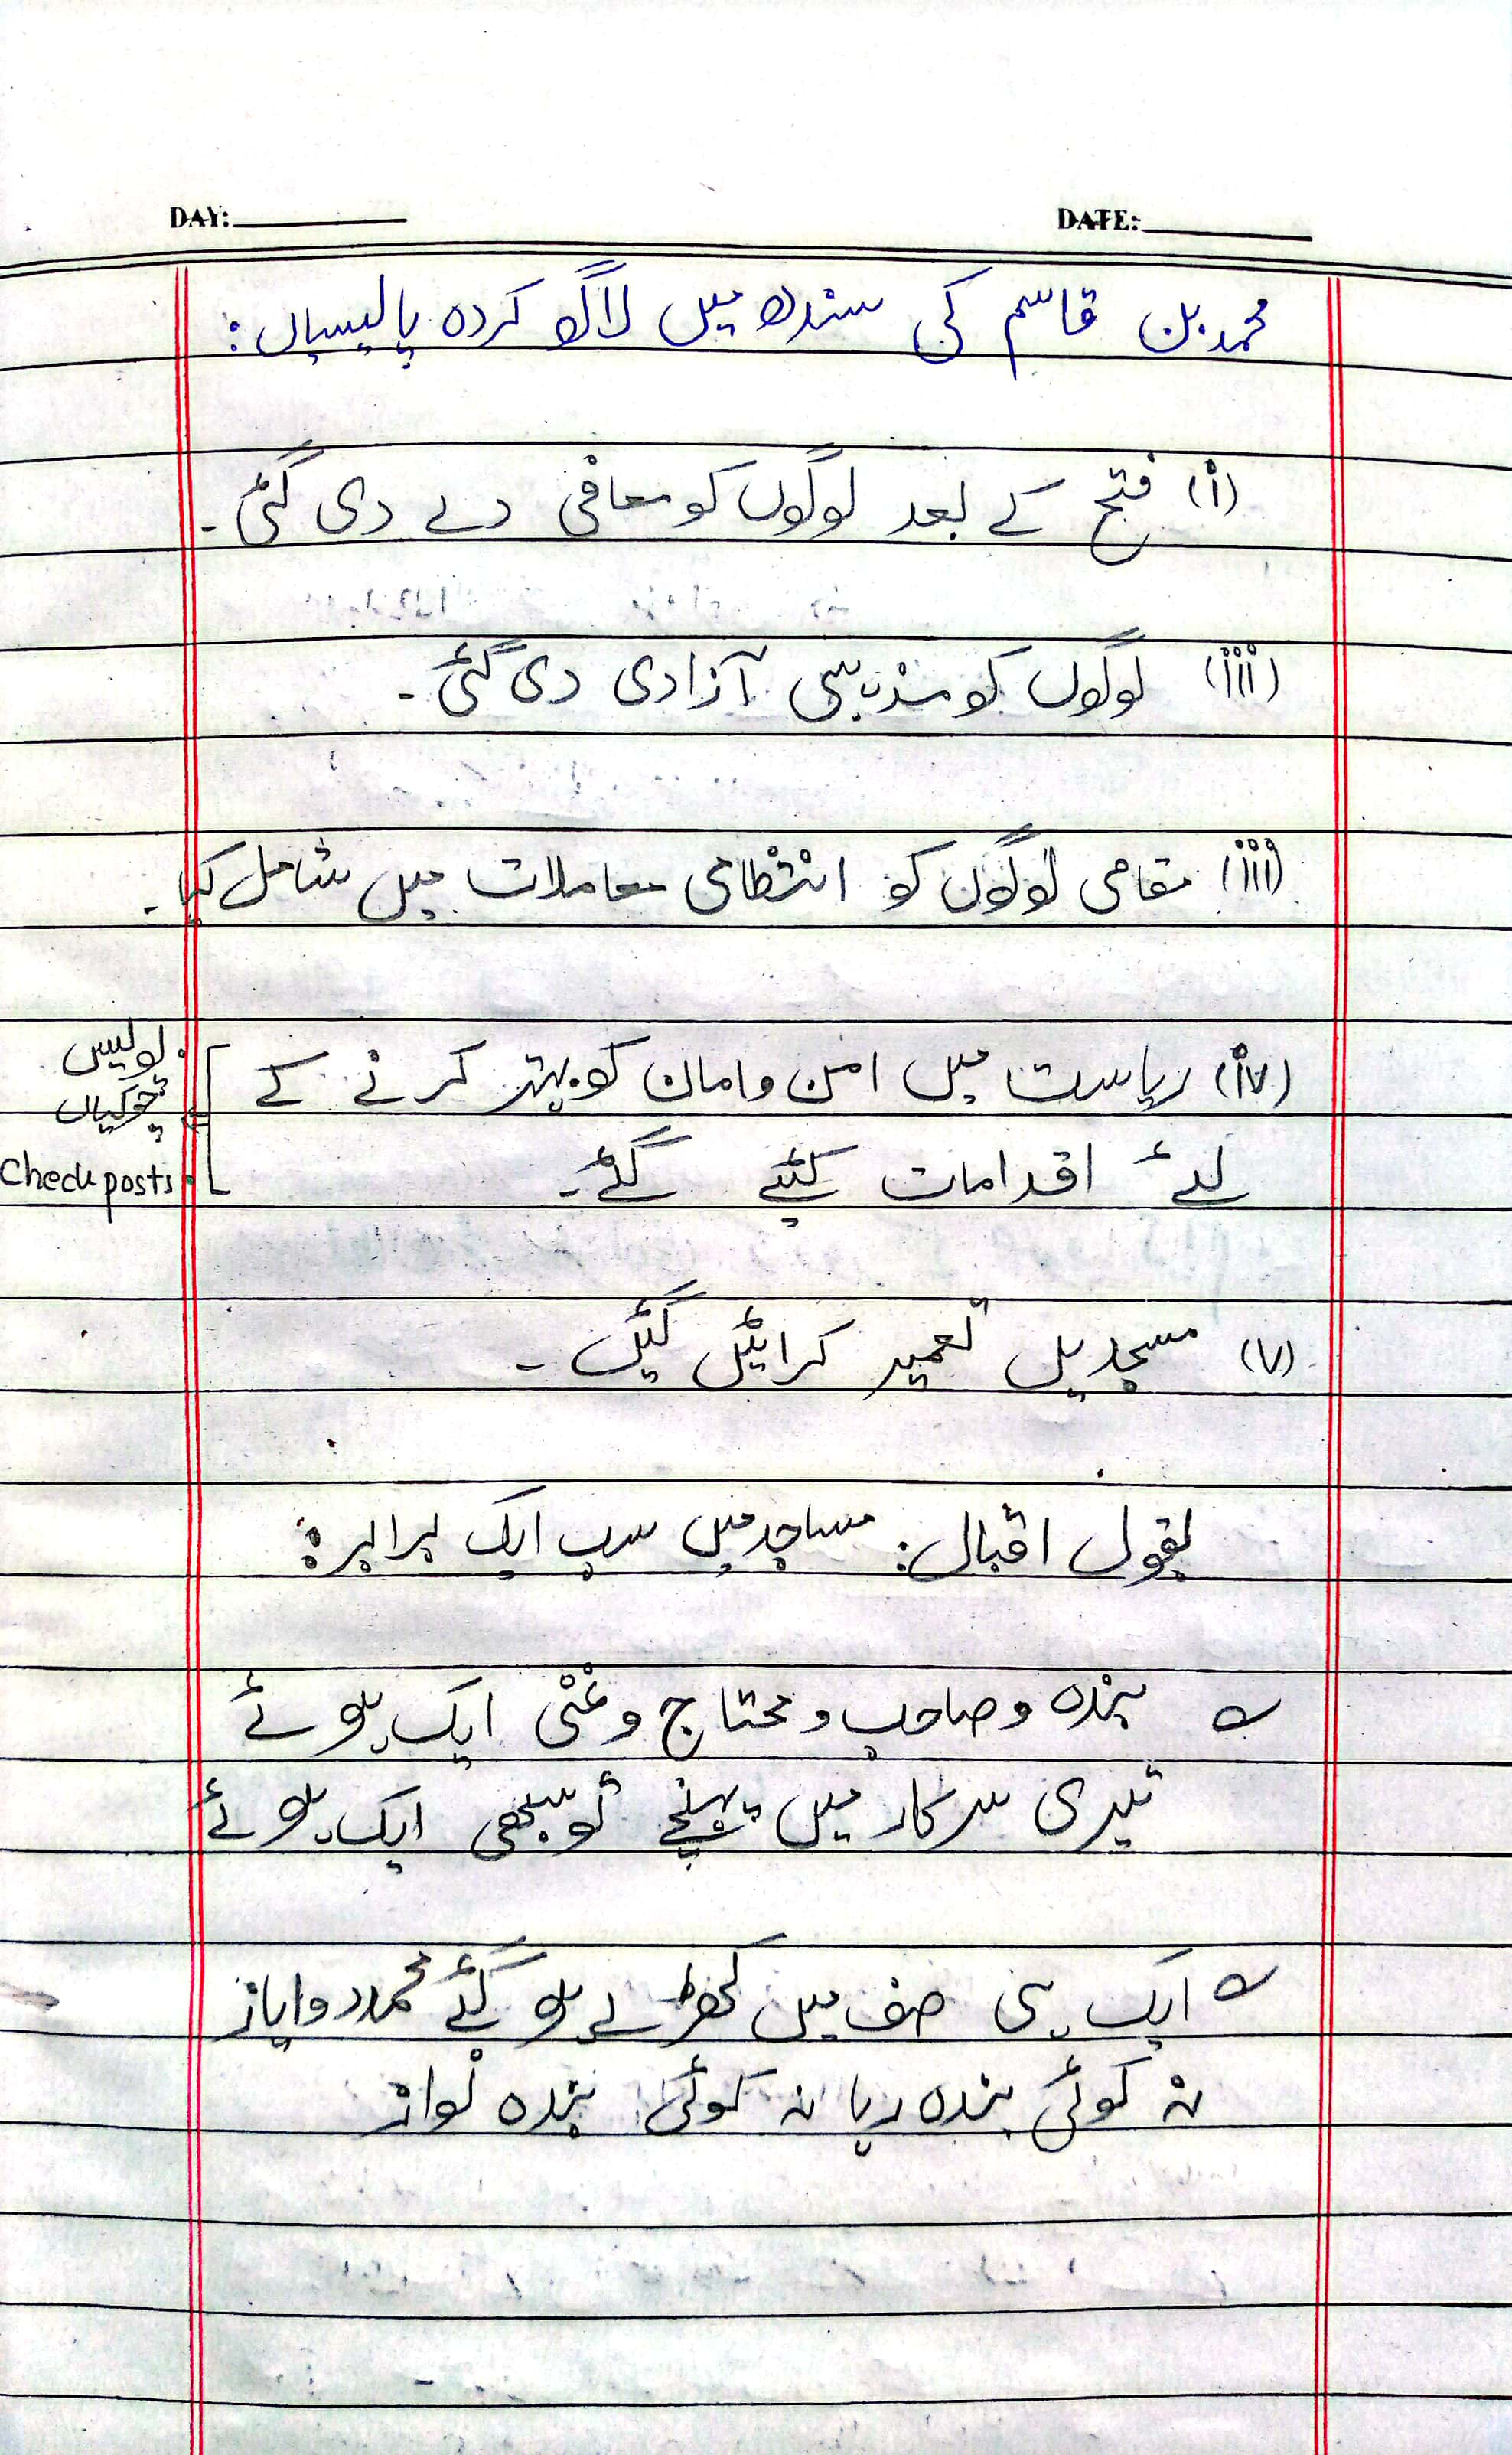 DAY: DATE:
محمد بن قاسم کی سندھ میں لاگو کردہ پالیسیاں:
(i) فتح کے بعد لوگوں کو معافی دے دی گئی۔
(iii) لوگوں کو مذہبی آزادی دی گئی۔
(iii) مقامی لوگوں کو انتظامی معاملات میں شامل کیا۔
(iv) ریاست میں امن و امان کو بہتر کرنے کے
لئے اقدامات کئیے گئے۔
پولیس
چوکیاں
Check posts
(v) مسجدیں تعمیر کرائیں گئیں۔
بقول اقبال: مساجد میں سب ایک برابر:
؎ بندہ و صاحب و محتاج و غنی ایک ہوئے
تیری سرکار میں پہنچے تو سبھی ایک ہوئے
؎ ایک ہی صف میں کھڑے ہو گئے محمود و ایاز
نہ کوئی بندہ رہا نہ کوئی بندہ نواز